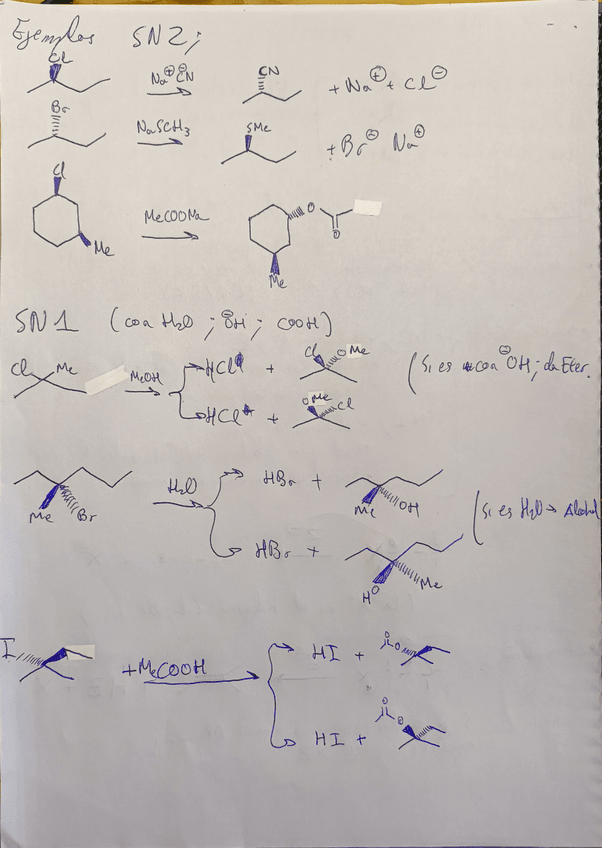 Ejemplos SN2;
Cl
Na⊕ ⊖CN
CN
+ Na⊕ + Cl⊖
Br
NaSCH3
SMe
+ Br⊖ Na⊕
Cl
Me
MeCOONa
O
O
Me
SN1 (con H2O ; ⊖OH ; COOH)
Cl Me
MeOH
HCl +
Cl OMe
(Si es con ⊖OH; da Eter.
HCl +
OMe Cl
Me Br
H2O
HBr +
Me OH
(Si es H2O → Alcohol
HBr +
HO Me
I
+ MeCOOH
HI +
O O
HI +
O O